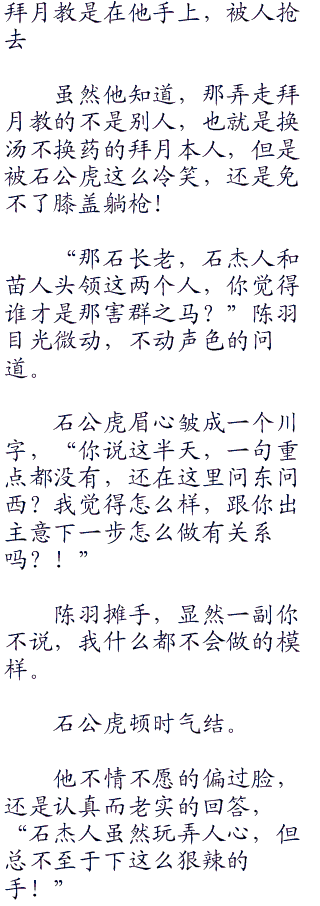 拜月教是在他手上，被人抢
去
虽然他知道，那弄走拜
月教的不是别人，也就是换
汤不换药的拜月本人，但是
被石公虎这么冷笑，还是免
不了膝盖躺枪！
“那石长老，石杰人和
苗人头领这两个人，你觉得
谁才是那害群之马？”陈羽
目光微动，不动声色的问
道。
石公虎眉心皱成一个川
字，“你说这半天，一句重
点都没有，还在这里问东问
西？我觉得怎么样，跟你出
主意下一步怎么做有关系
吗？！”
陈羽摊手，显然一副你
不说，我什么都不会做的模
样。
石公虎顿时气结。
他不情不愿的偏过脸，
还是认真而老实的回答，
“石杰人虽然玩弄人心，但
总不至于下这么狠辣的
手！”